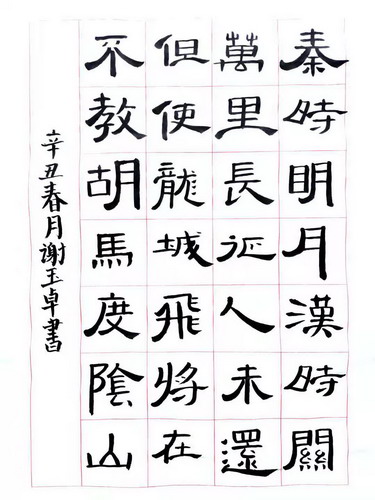 秦時明月漢時關
萬里長征人未還
但使龍城飛將在
不教胡馬度陰山
辛丑春月謝玉卓書